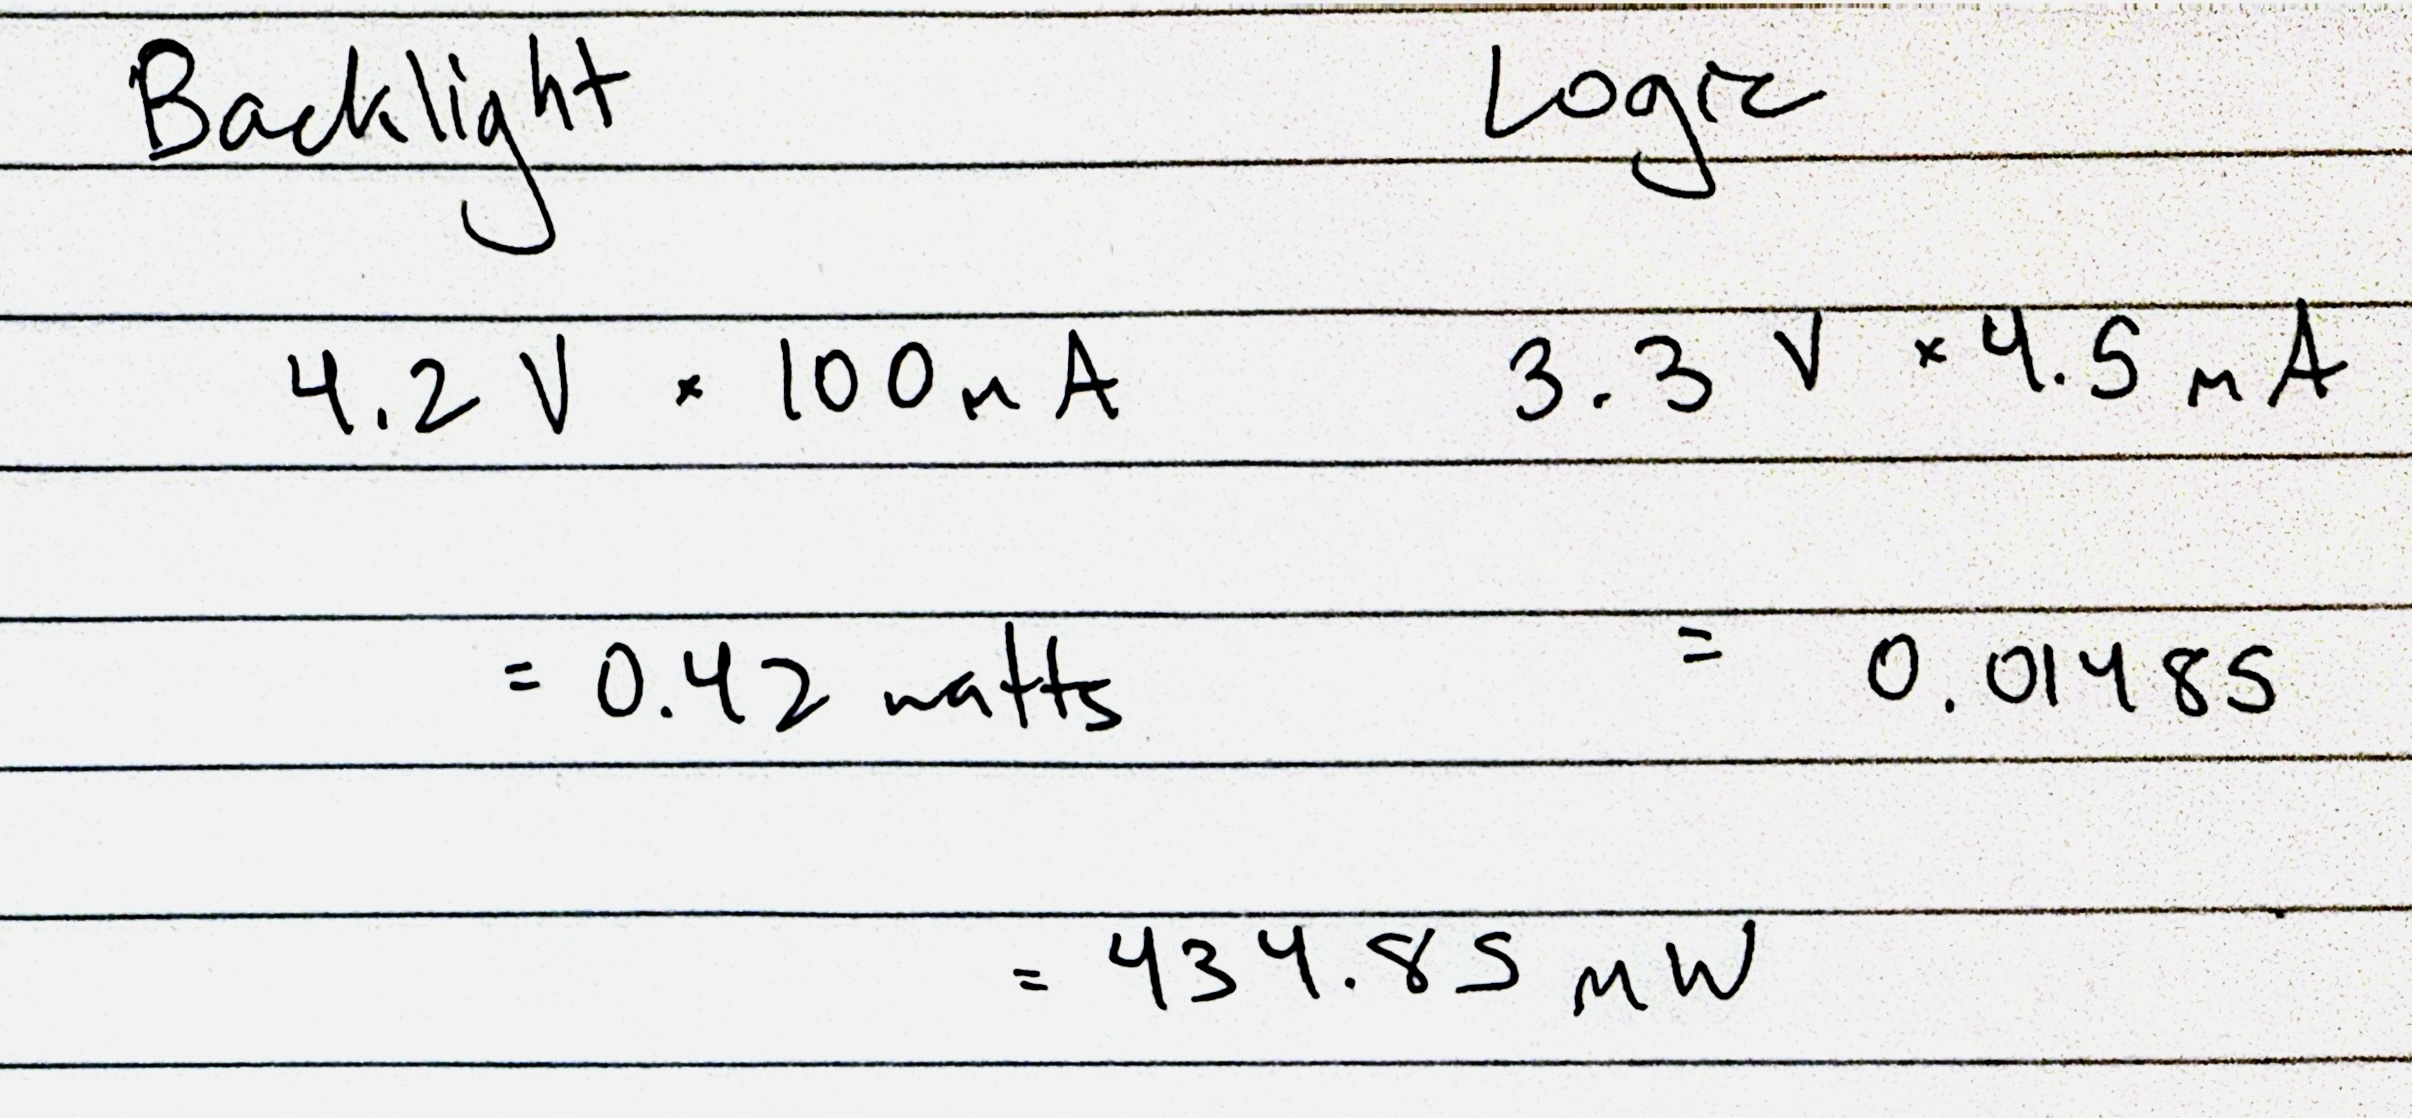 Backlight Logic
4.2 V × 100mA 3.3 V × 4.5 mA
= 0.42 watts = 0.01485
= 434.85 mW